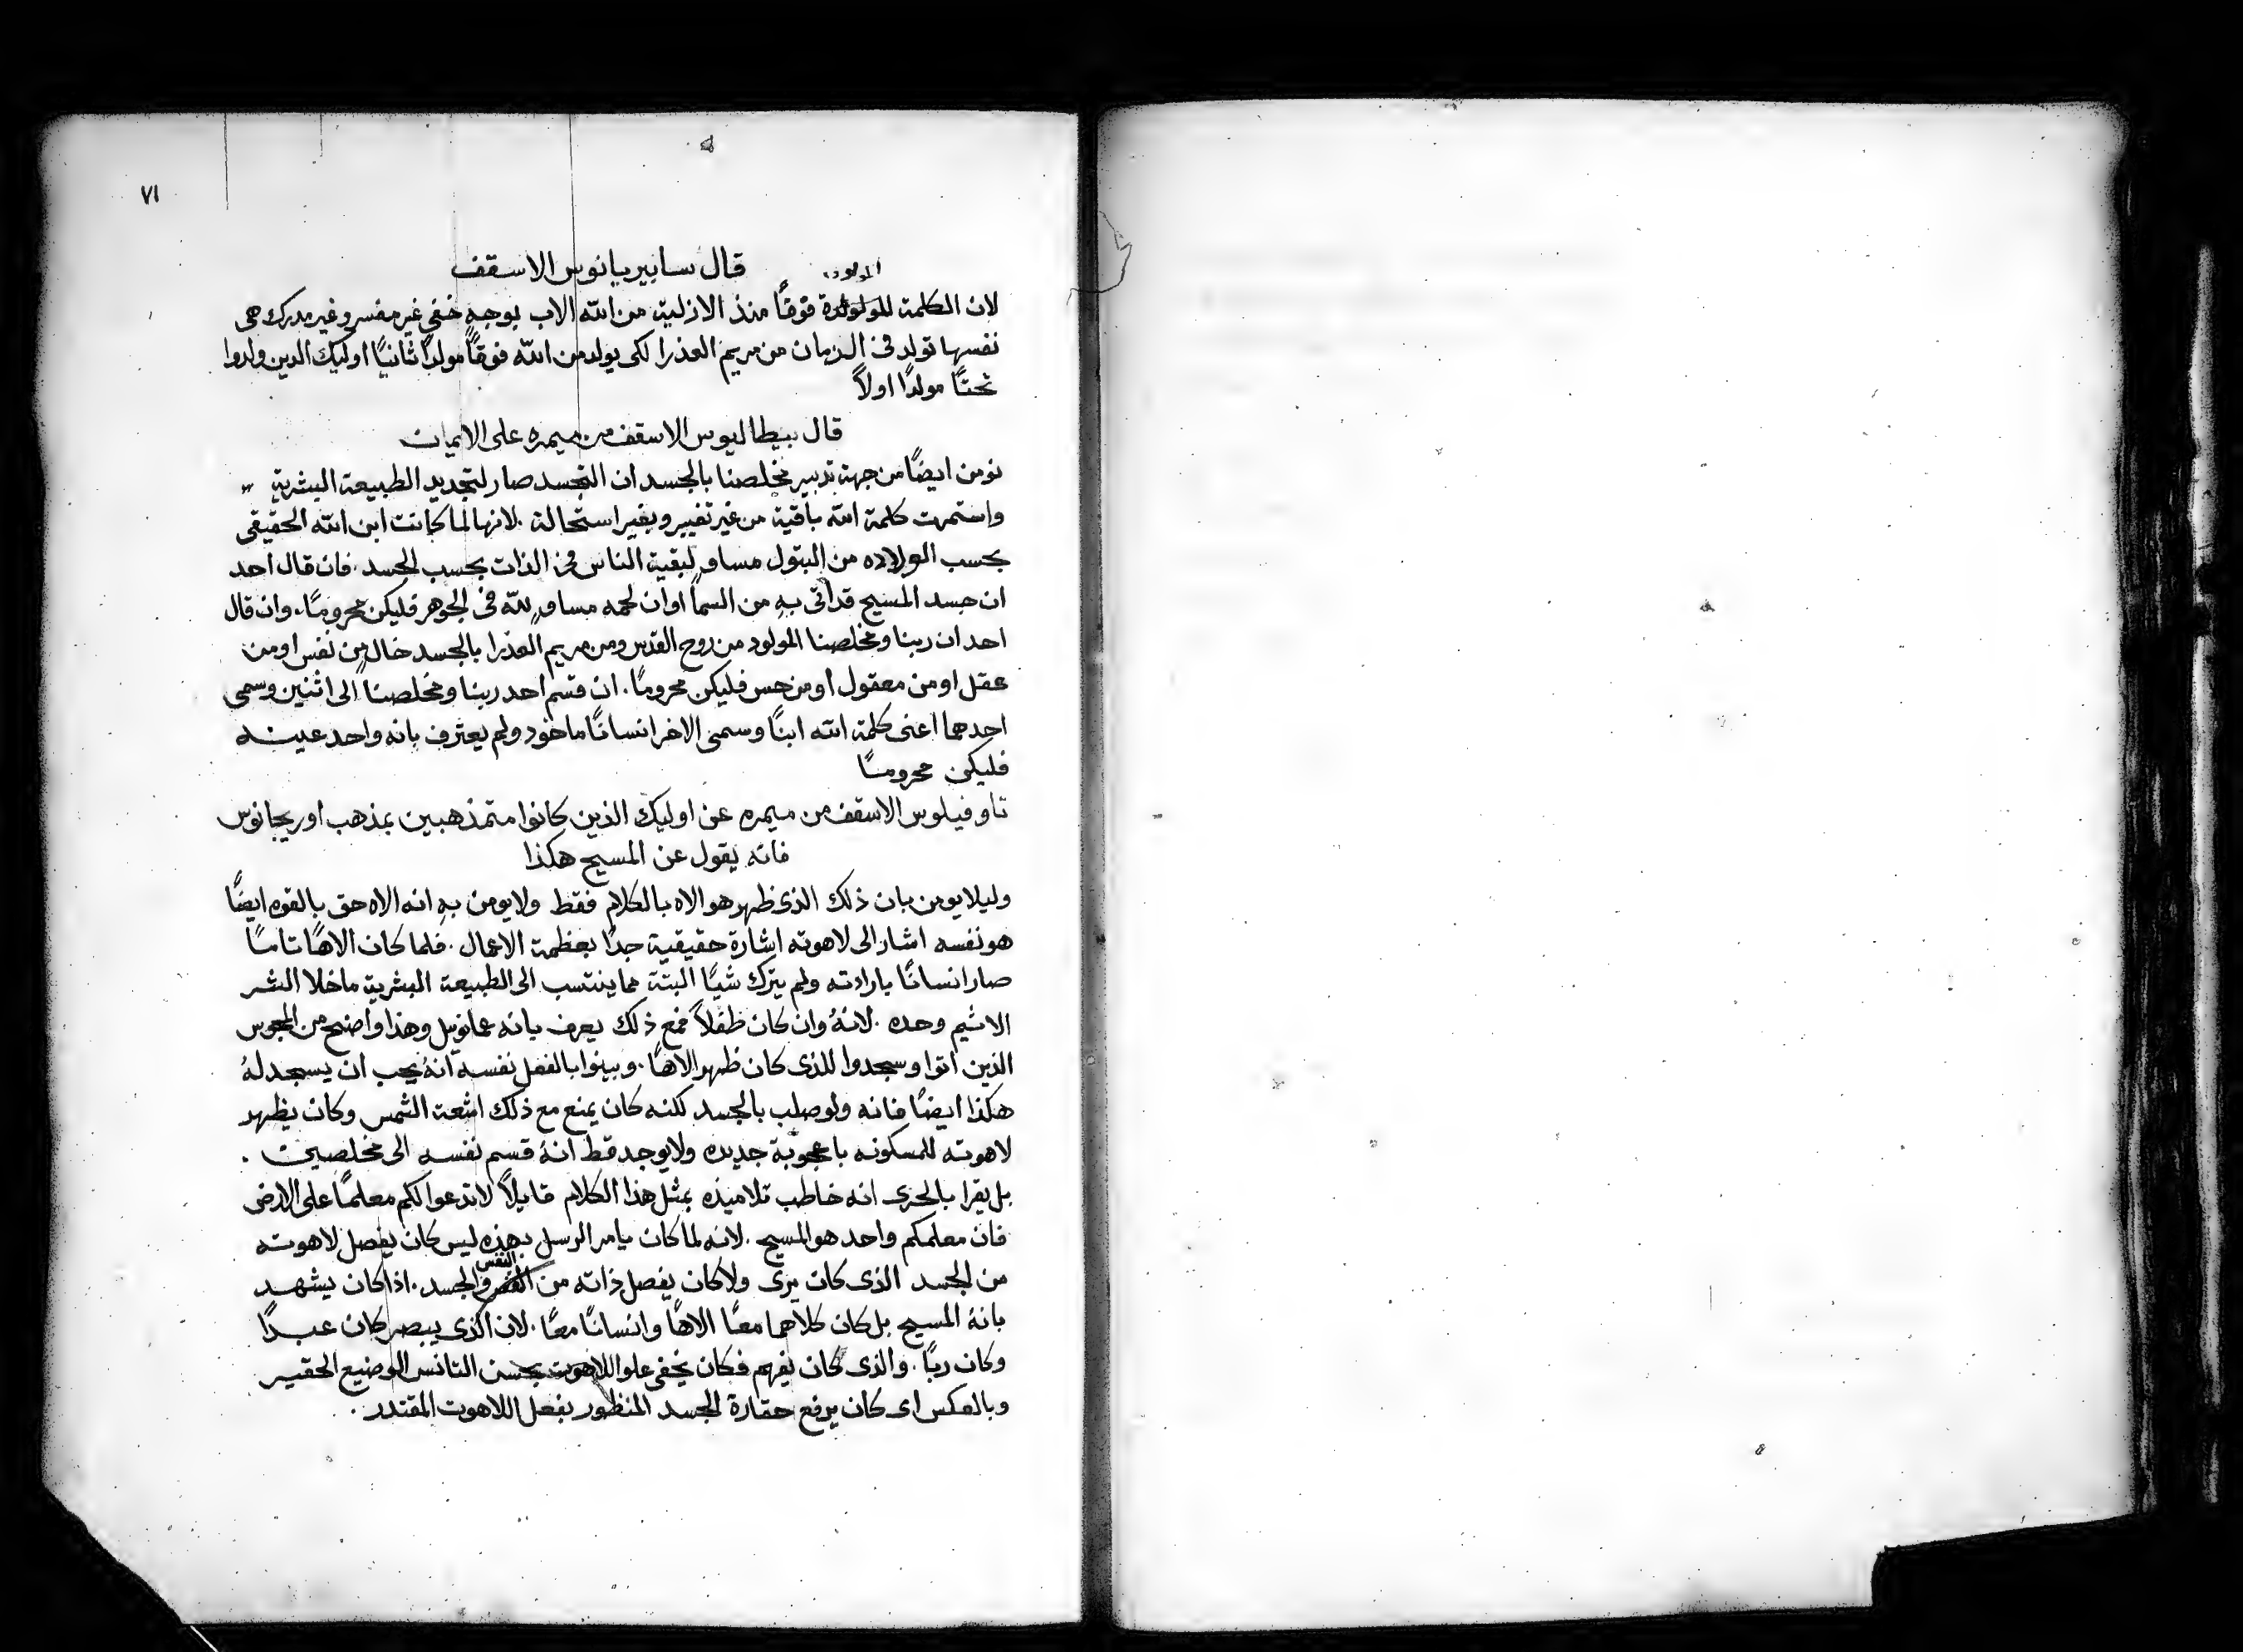 ٧١
قال سابيريانوس الاسقف
المولوده
لان الكلمة المولودة فوقًا منذ الازلية من الله الاب بوجهٍ خفي غير مفسر وغير مدرك هى
نفسها تولد فى الزمان من مريم العذرا لكى يولد من الله فوقًا مولدًا ثانيًا اوليك الدين ولدوا
تحتًا مولدًا اولاً
قال بيطاليوس الاسقف من ميمره على الايمان
نومن ايضًا من جهة تدبير مخلصنا بالجسد ان التجسد صار لتجديد الطبيعة البشرية
واستمرت كلمة الله باقية من غير تغيير وبغير استحالة . لانها لما كانت ابن الله الحقيقى
بحسب الولاده من البتول مساوٍ لبقية الناس فى الذات بحسب الجسد . فان قال احد
ان جسد المسيح قد اتى بهِ من السما او ان لحمه مساوٍ لله فى الجوهر فليكن محرومًا . وان قال
احد ان ربنا ومخلصنا المولود من روح القدس ومن مريم العذرا بالجسد خالٍ من نفس او من
عقل او من معقول او من حس فليكن محرومًا . ان قسم احد ربنا ومخلصنا الى اثنين وسمى
احدهما اعنى كلمة الله ابنًا وسمى الاخر انسانًا ماخود ولم يعترف بانه واحد عينه
فليكن محرومًا
تاوفيلوس الاسقف من ميمره عن اوليك الذين كانوا متمذهبين بمذهب اوريجانوس
فانه يقول عن المسيح هكذا
وليلا يومن بان ذلك الذى ظهر هو الاه بالكلام فقط ولا يومن بهِ انه الاه حق بالقوه ايضًا
هو نفسه اشار الى لاهوته اشارة حقيقية جدًا بعظمة الاعمال . فلما كان الاهًا تامًا
صار انسانًا باراءته ولم يترك شيًا البتة مما ينتسب الى الطبيعة البشرية ما خلا الشر
الاثيم وحده . لانهُ وان كان طفلاً فمع ذلك يعرف بانه عمانويل وهذا واضح من المجوس
الذين اتوا وسجدوا للذى كان ظهر الاهًا . وبينوا بالفعل نفسه انهُ يجب ان يسجد لهُ
هكذا ايضًا فانه ولو صلب بالجسد لكنه كان يمنع مع ذلك اشعة الشمس وكان يظهر
لاهوته للمسكونه باعجوبة جديده ولا يوجد قط انهُ قسم نفسه الى مخلصين .
بل يقرا بالحرى انه خاطب تلاميذه بمثل هذا الكلام قايلاً لا تدعوا لكم معلمًا على الارض
فان معلمكم واحد هو المسيح . لانه لما كان يامر الرسل بهذه ليس كان يفصل لاهوته
من الجسد الذى كان يرى ولا كان يفصل ذاته من النفس والجسد . اذا كان يشهد
بانهُ المسيح بل كان كلاهما معًا الاهًا وانسانًا معًا . لان الذى يبصر كان عبدًا
وكان ربًا . والذى كان يفهم فكان يخفى علو اللاهوت بحسن التانس الوضيع الحقير
وبالعكس اى كان يرفع حقارة الجسد المنظور بفعل اللاهوت المقتدر .